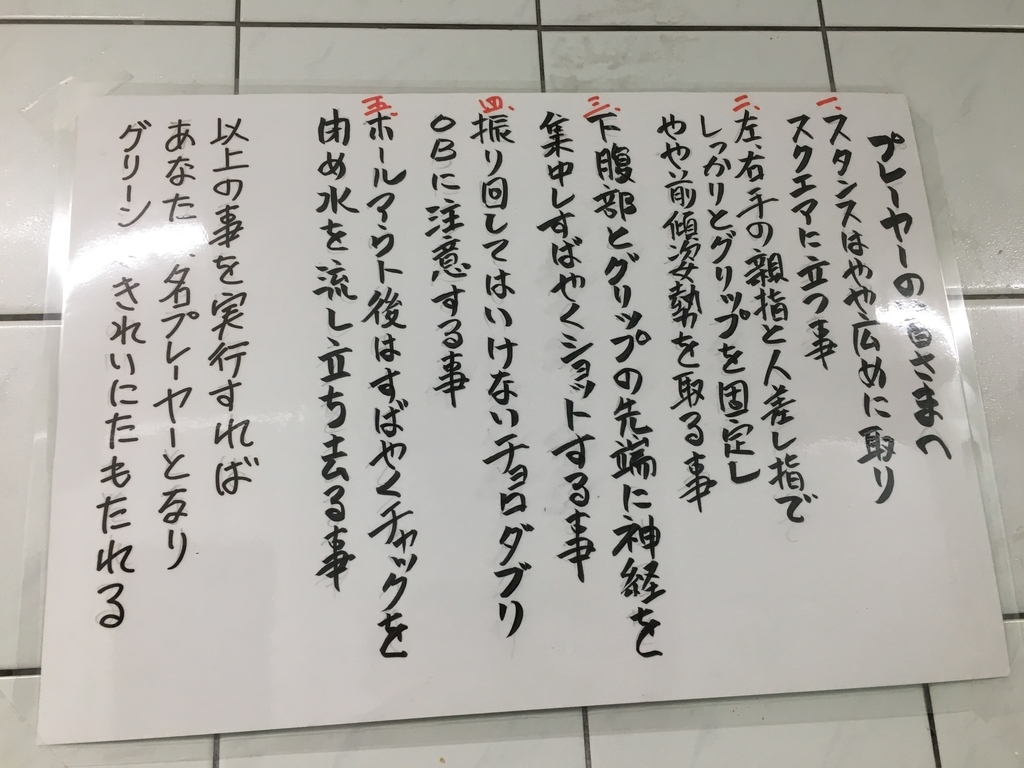 プレーヤーの皆さまへ
一、スタンスはやや広めに取り
スクエアに立つ事
二、左、右手の親指と人差し指で
しっかりとグリップを固定し
やや前傾姿勢を取る事
三、下腹部とグリップの先端に神経を
集中しすばやくショットする事
四、振り回してはいけないチョロダブリ
OBに注意する事
五、ホールアウト後はすばやくチャックを
閉め水を流し立ち去る事
以上の事を実行すれば
あなた 名プレーヤーとなり
グリーン きれいにたもたれる